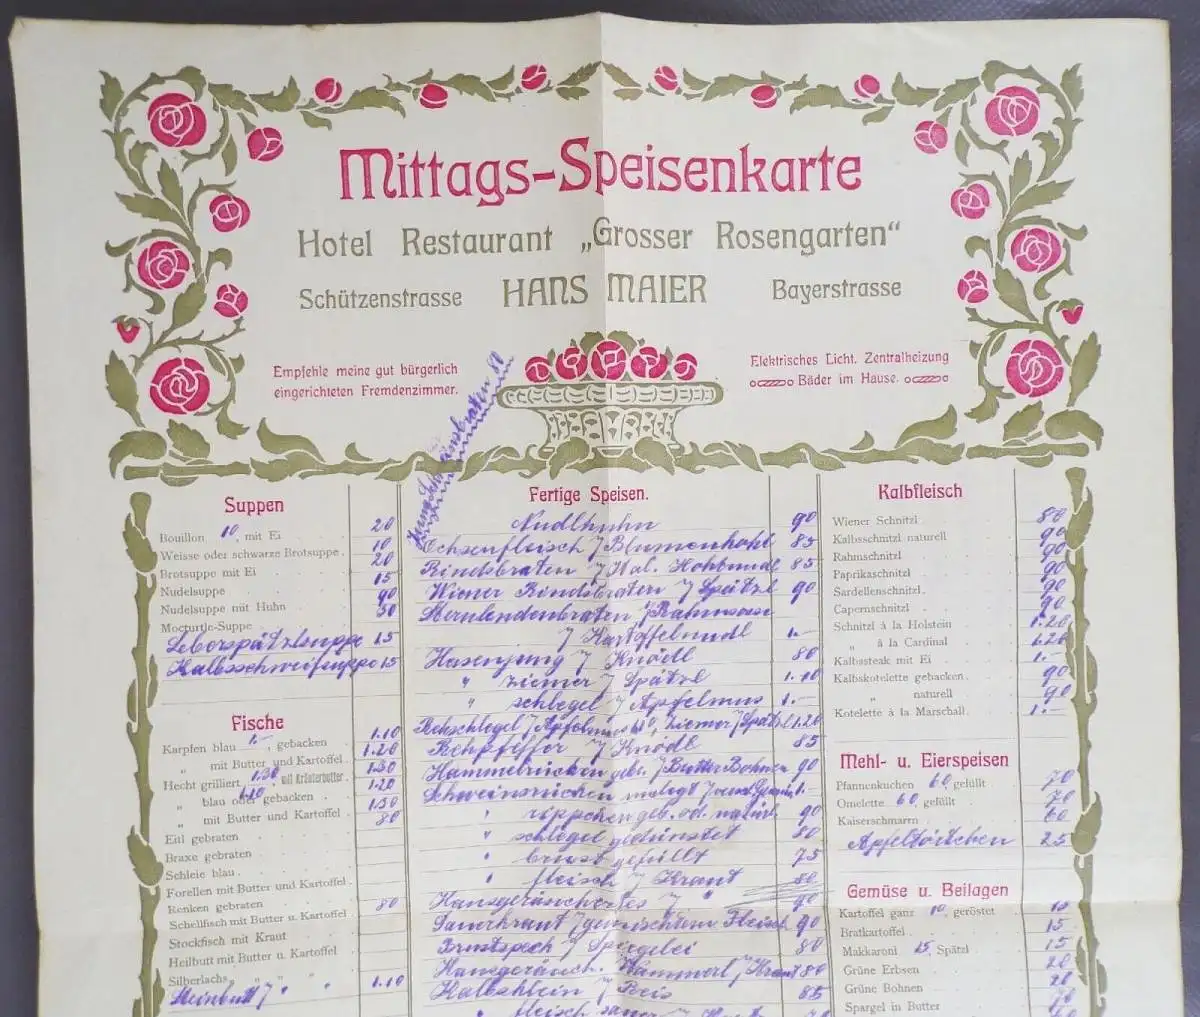 Mittags-Speisenkarte
Hotel Restaurant „Grosser Rosengarten“
Schützenstrasse HANS MAIER Bayerstrasse
Empfehle meine gut bürgerlich
eingerichteten Fremdenzimmer.
Elektrisches Licht. Zentralheizung
Bäder im Hause.
Jungschweinsbraten 80
Suppen
Bouillon 10, mit Ei 20
Weisse oder schwarze Brotsuppe 10
Brotsuppe mit Ei 20
Nudelsuppe 15
Nudelsuppe mit Huhn 90
Mocturtle-Suppe 50
Leberspätzlsuppe 15
Kalbsschweifsuppe 15
Fische
Karpfen blau 1.–, gebacken 1.10
„ mit Butter und Kartoffel 1.20
Hecht grilliert 1.30 mit Kräuterbutter 1.30
„ blau oder gebacken 1.20
„ mit Butter und Kartoffel 1.30
Eitl gebraten 80
Braxe gebraten
Schleie blau
Forellen mit Butter und Kartoffel
Renken gebraten
Schellfisch mit Butter u. Kartoffel 80
Stockfisch mit Kraut
Heilbutt mit Butter u. Kartoffel
Silberlachs „ „ „
Steinbutt „ „ 1.10
Fertige Speisen.
Nudlhuhn 90
Ochsenfleisch / Blumenkohl 85
Rindsbraten / Kal. Kohlnudl 85
Wiener Rindsbraten / Spätzl 90
Hernlendenbraten / Rahmsose
/ Kartoffelnudl 1.–
Hasenjung / Knödl 80
„ Ziemer / Spätzl 1.10
„ schlegel / Apfelmus 1.–
Rehschlegel / Apfelmus, Ziemer / Spätzl 1.20
Rehpfeffer / Knödl 85
Hammelrücken gebr. / Butter Bohnen 90
Schweinsrücken 1.–
„ rippchen geb. od. natürl 90
„ schlegel gedünstet 80
„ brust gefüllt 75
„ fleisch / Kraut 80
Hausgeräuchertes / „ 90
Sauerkraut / gemischtem Fleisch 90
Brustspeck / Spiegelei 80
Hausgeräuch. Kammerl / Kraut 80
Kalbshirn / Reis 85
„ fleisch sauer
Kalbfleisch
Wiener Schnitzl 80
Kalbsschnitzl naturell 90
Rahmschnitzl 90
Paprikaschnitzl 90
Sardellenschnitzl 90
Capernschnitzl 90
Schnitzl à la Holstein 1.20
„ à la Cardinal 1.20
Kalbssteak mit Ei 1.–
Kalbskotelette gebacken 90
„ naturell 90
Kotelette à la Marschall 1.–
Mehl- u. Eierspeisen
Pfannenkuchen 60, gefüllt 70
Omelette 60, gefüllt 70
Kaiserschmarrn 60
Apfeltörtchen 25
Gemüse u. Beilagen
Kartoffel ganz 10, geröstet 15
Bratkartoffel 15
Makkaroni 15, Spätzl 15
Grüne Erbsen 20
Grüne Bohnen 20
Spargel in Butter 70